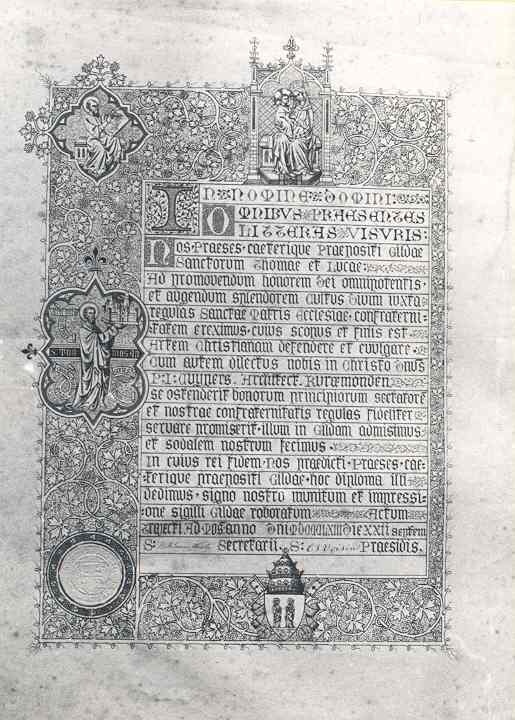 IN NOMINE DOMINI:
OMNIBVS PRAESENTES
LITTERAS VISVRIS:
Nos Praeses caeterique Praepositi Gildae
Sanctorum Thomae et Lucae.
Ad promovendum honorem Dei omnipotentis,
et augendum splendorem Cultus Divini iuxta
regulas Sanctae Matris Ecclesiae, confraterni-
tatem ereximus, cuius scopus et finis est
Artem Christianam defendere et evulgare.
Cum autem dilectus nobis in Christo Dnus
P. I. Cuypers, Architect. Ruraemonden
se ostenderit bonorum principiorum sectatore
et nostrae confraternitatis regulas fideliter
servare promiserit, illum in Gildam admisimus,
et sodalem nostrum fecimus.
In cuius rei fidem, Nos praedicti, Praeses cae-
terique praepositi Gildae, hoc diploma illi
dedimus, signo nostro munitum et impressi-
one sigilli Gildae roboratum. Actum
anno Dni Die XXII Septem
S: Secretarii. S: Praesidis.